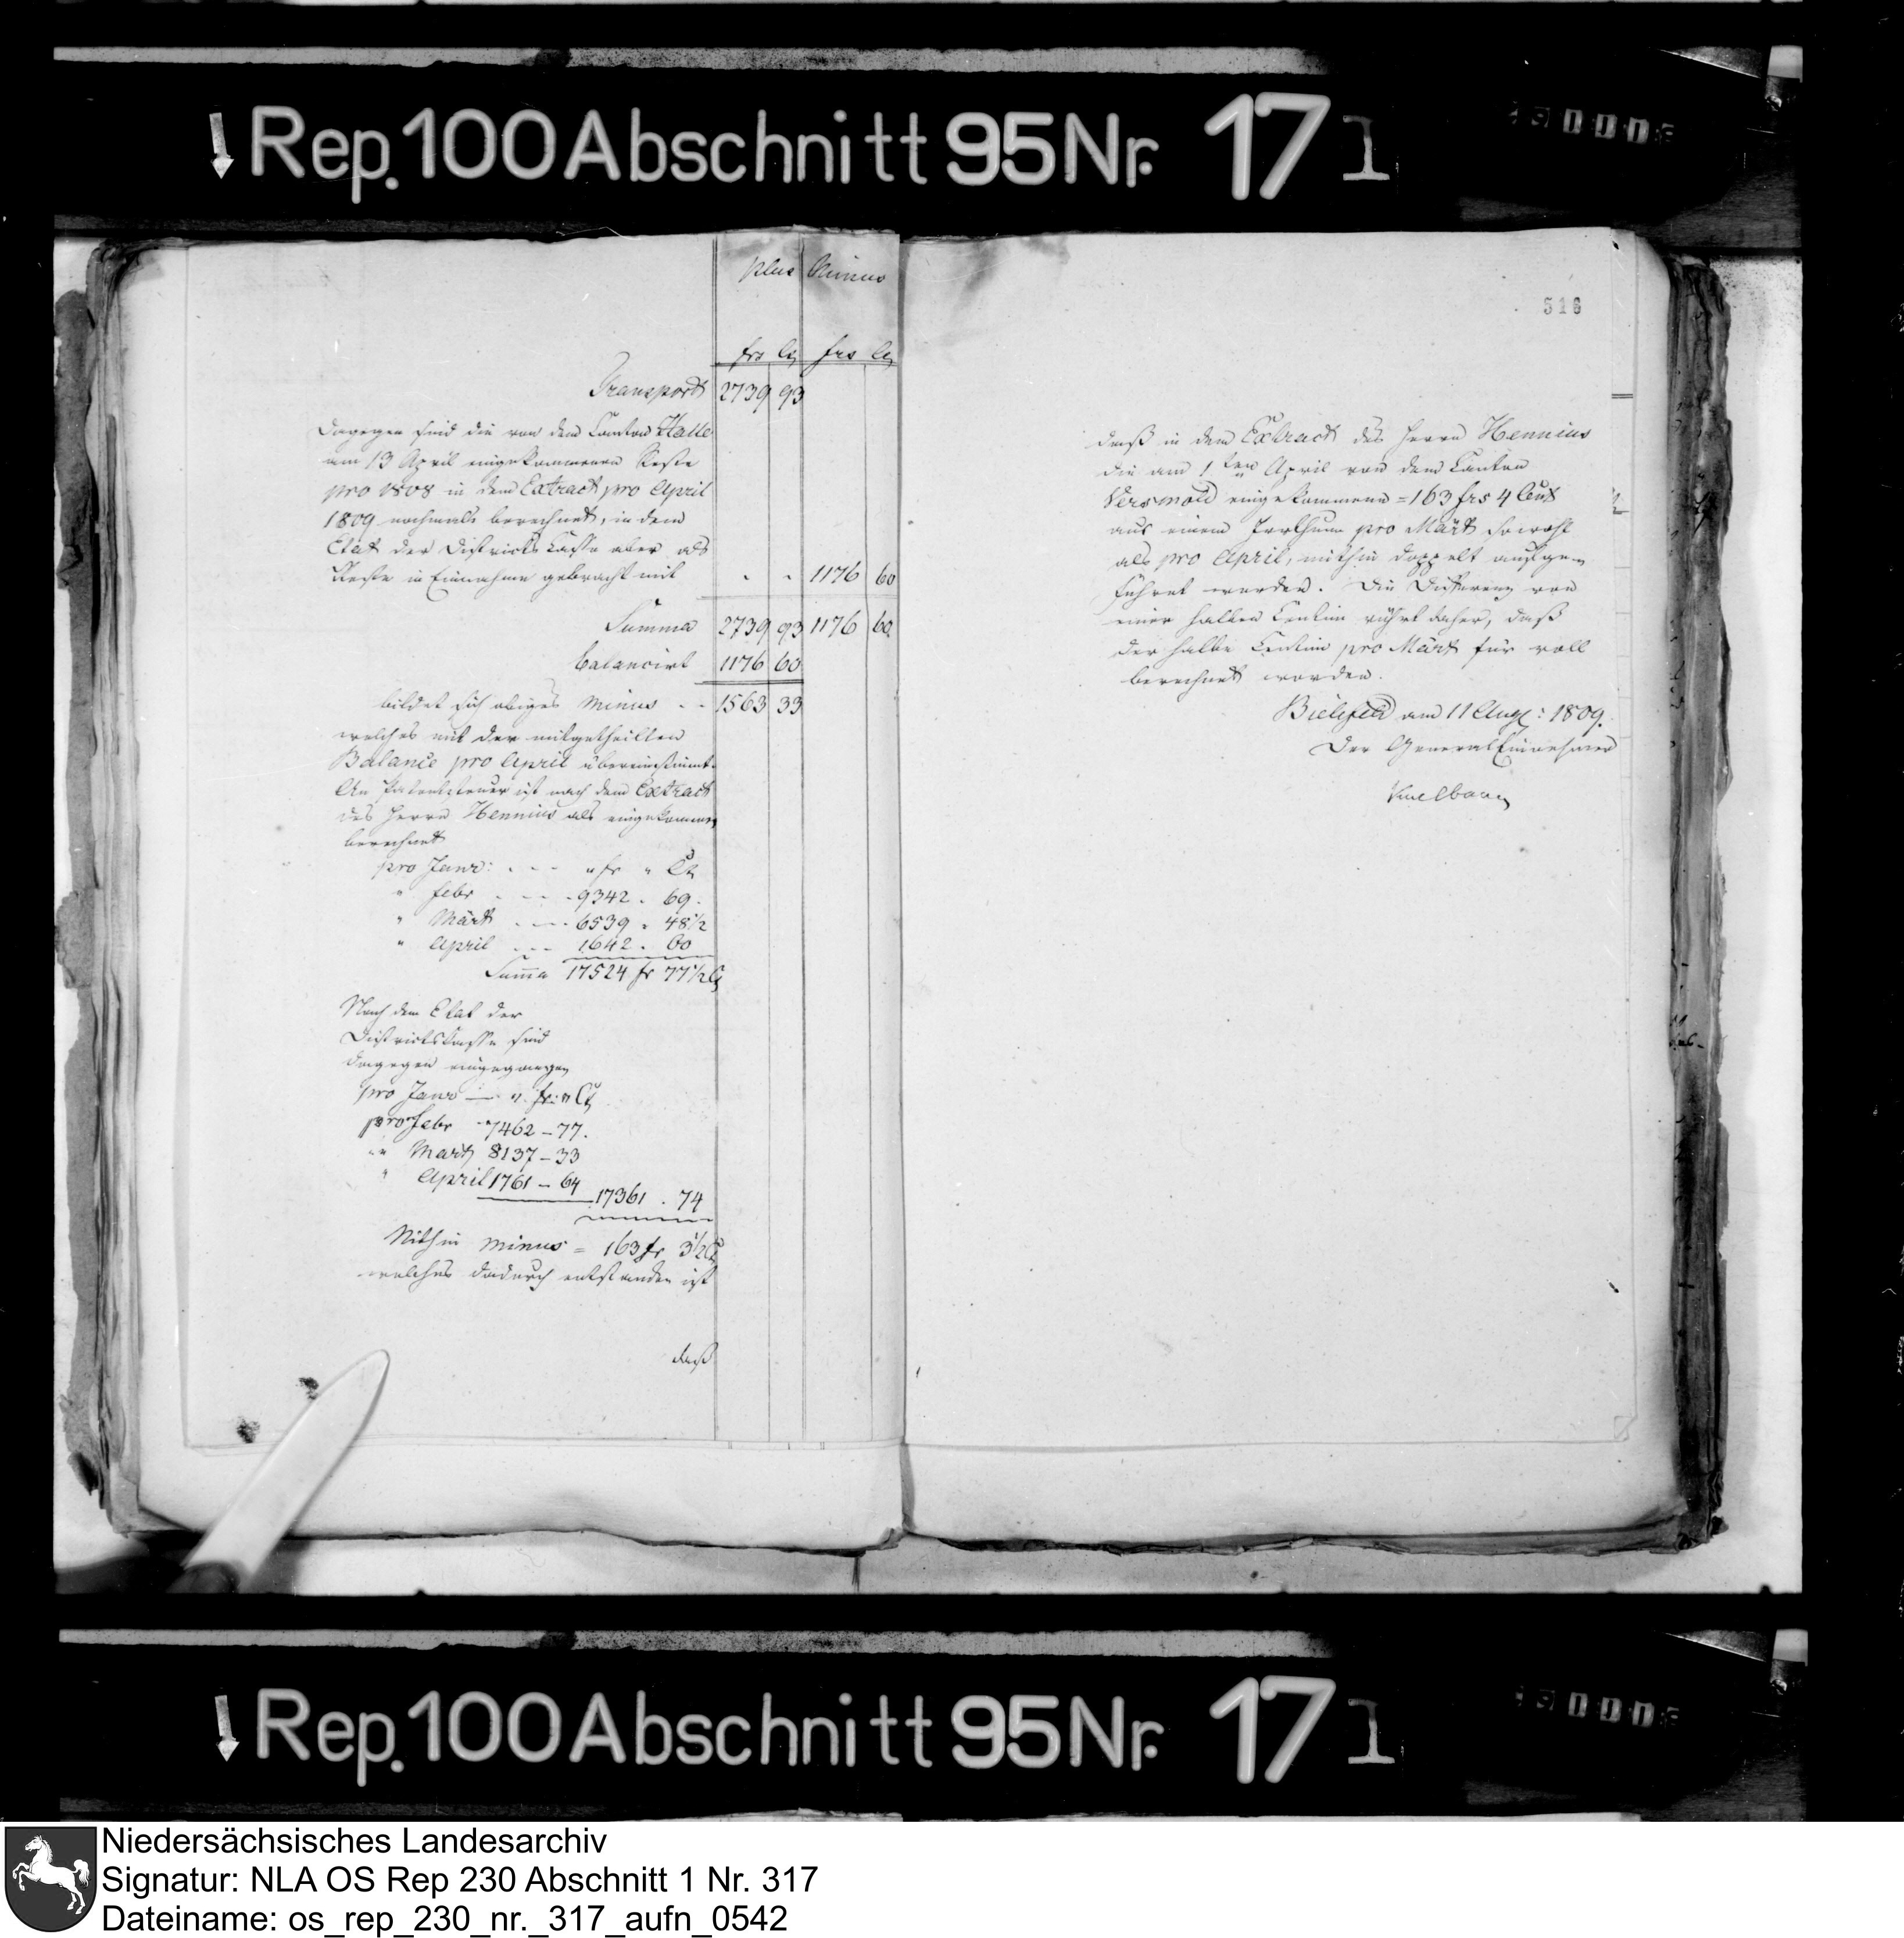 Rep. 100 Abschnitt 95 Nr. 171
plus Minus
frs Ct frs Ct
Transport 2739 93
Dagegen sind die von dem Canton Halle
am 13 April eingekommenen Reste
pro 1808 in dem Extract pro April
1809 nochmals berechnet, in dem
Etat der Districts Casse aber als
Reste in Einnahme gebracht mit " " 1176 60
Summa 2739 93 1176 60
balancirt 1176 60
bildet sich obiges minus - - 1563 33
welches mit der mitgetheilten
Balance pro April übereinstimmt.
An Patentsteuer ist nach dem Extract
des Herrn Hennius als eingekommen
berechnet
pro Janr: - - - " fr " Ct
" Febr - - - 9342 . 69.
" Märt - - - 6539 " 48½
" April - - - 1642 . 60
Summa 17524 fr 77½ Ct
Nach dem Etat der
Districtskasse sind
dagegen eingegangen
pro Janr — " fr: " Ct
pro Febr 7462 – 77.
" Martz 8137 – 33
" April 1761 – 64
17361 . 74
Mithin minus = 163 fr 3½ Ct
welches dadurch entstanden ist
daß
316
daß in dem Extract des Herrn Hennius
die am 1ten April von dem Canton
Versmold eingekommene = 163 frs 4 Cent
aus einem Irrthum pro Märt sowohl
als pro April, mithin doppelt aufge-
führet worden. Die Differenz von
einer halben Centim rührt daher, daß
der halbe Centim pro Märt für voll
berechnet worden.
Bielefeld am 11 Aug: 1809.
Der General Einnehmer
Rep. 100 Abschnitt 95 Nr. 171
Niedersächsisches Landesarchiv
Signatur: NLA OS Rep 230 Abschnitt 1 Nr. 317
Dateiname: os_rep_230_nr._317_aufn_0542